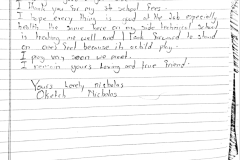 I thank you for my sch school fees.
I hope every thing is good at the Job especially
health the same here on my side technical school
is treating me well and I look forward to stand
on ones feet because its a child play.
I pray very soon we meet.
I remain yours loving and true friend.
Yours Lovely nicholas
Nicholas